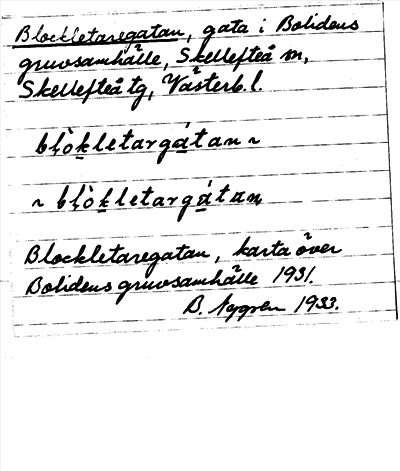 Blockletaregatan, gata i Bolidens
gruvsamhälle, Skellefteå sn,
Skellefteå tg, Västerb. l.
bḷò̩ḵletargá̱tan ~
~ bḷò̩ḵletargá̱tan̥
Blockletaregatan, karta över
Bolidens gruvsamhälle 1931.
B. Nygren 1933.